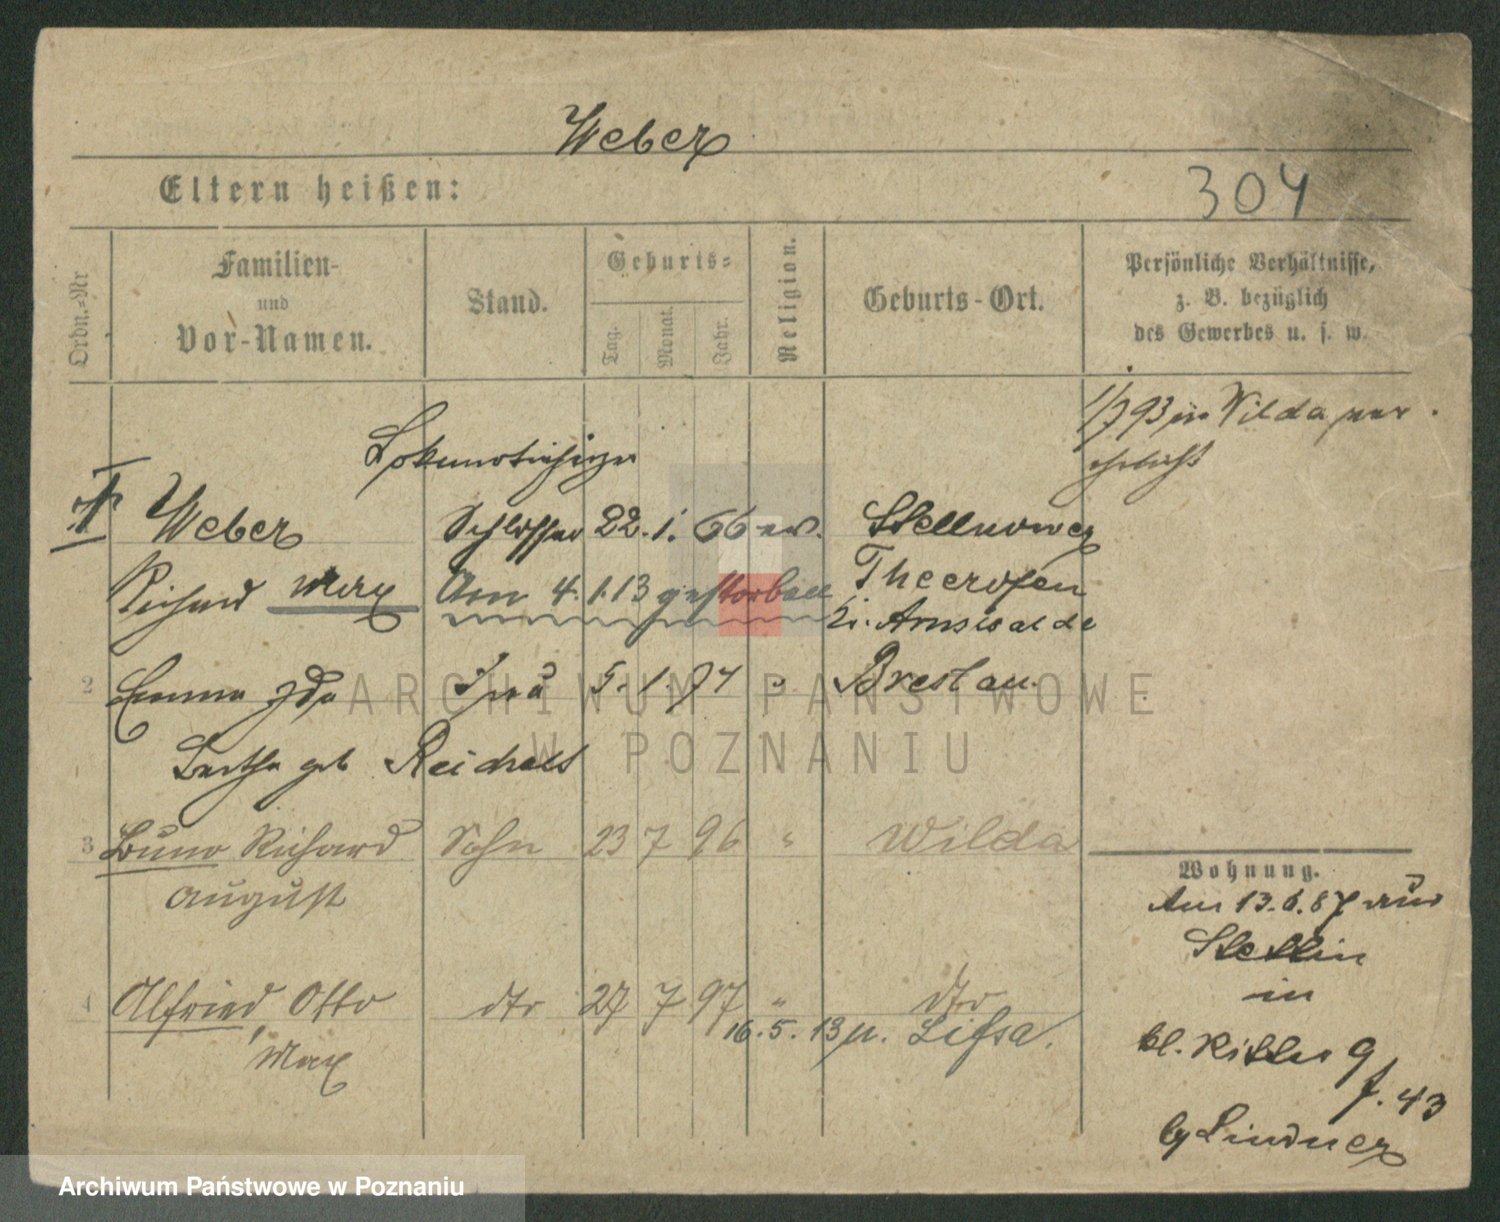 Weber
Eltern heißen:
304
Ordn.-Nr
Familien-
und
Vor-Namen.
Stand.
Geburts-
Tag.
Monat.
Jahr.
Religion.
Geburts-Ort.
Persönliche Verhältnisse,
z. B. bezüglich
des Gewerbes u. s. w.
1/7 93 in Wilda ver
ehelicht
Lokomotivheizer
Weber Schlosser 22. 1. 66 ev.
Richard Max Am 4. 1. 13 gestorben Theerofen
Kr. Arnswalde
2 Emma Ida Frau 5. 1. 71 " Breslau.
Bertha geb Reichelt
3 Bruno Richard Sohn 23 7 96 " Wilda
August
4 Alfried, Otto dto 27 7 97 " dto
Max 16. 5. 13 n. Lissa.
Wohnung.
Am 13. 6. 87 aus
Stettin
in
kl. Ritter 9
f. 43
by Lindner
ARCHIWUM PAŃSTWOWE
W POZNANIU
Archiwum Państwowe w Poznaniu